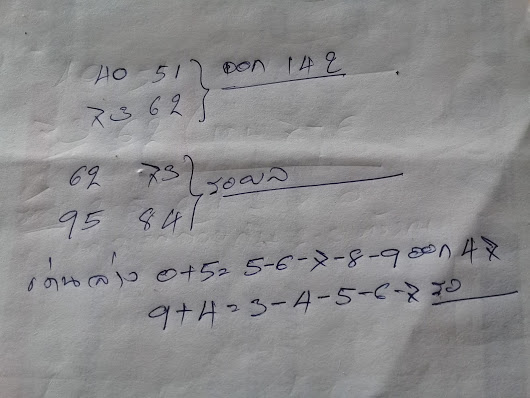 40 51 } ออก 142
73 62
62 73 } รอผล
95 84
เด่นล่าง 0+5= 5-6-7-8-9 ออก 47
9+4=3-4-5-6-7 รอ